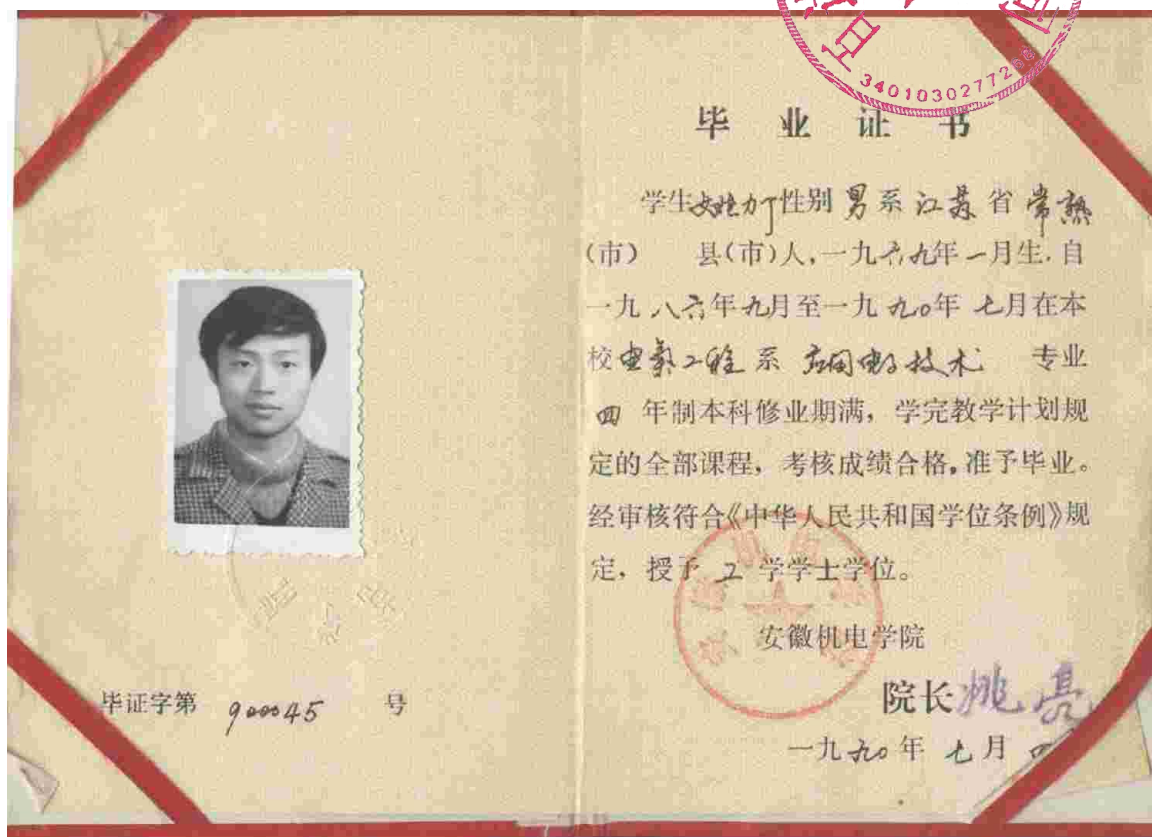 3401030277268
毕业证书
学生姚加丁性别男系江苏省常熟
(市) 县(市)人,一九六九年一月生.自
一九八六年九月至一九九〇年七月在本
校电气工程系应用电子技术 专业
四年制本科修业期满,学完教学计划规
定的全部课程,考核成绩合格。准予毕业。
经审核符合《中华人民共和国学位条例》规
定,授予工学学士学位。
安徽机电学院
院长姚亮
一九九〇年七月四
毕证字第 900045 号